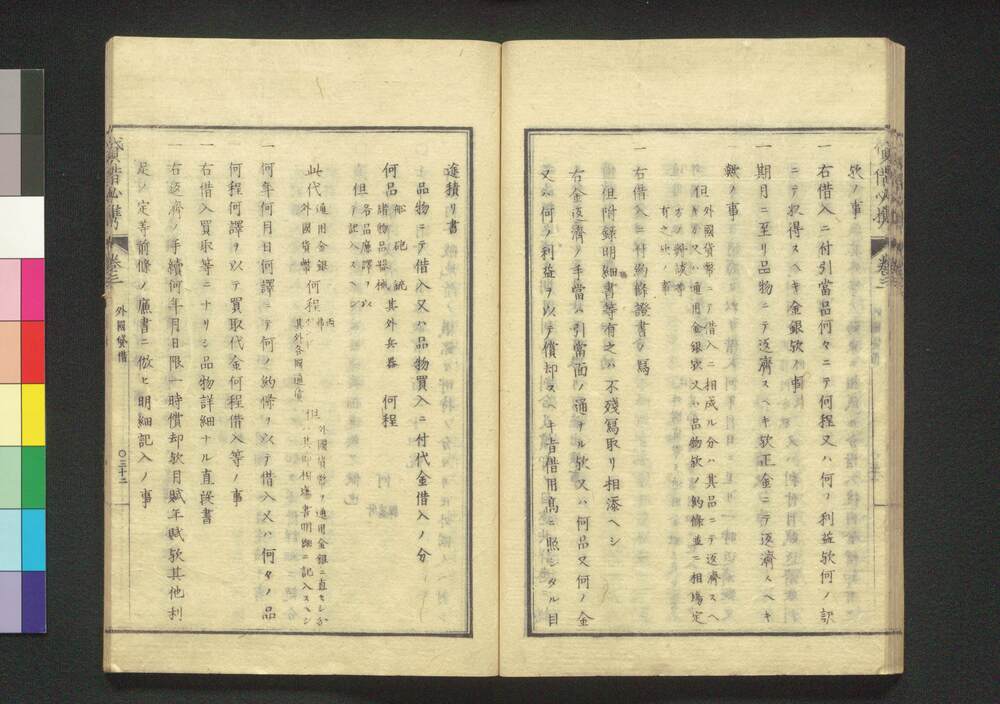 欤ノ事
一右借入ニ付引當品何々ニテ何程又ハ何ノ利益欤何ノ訳
ニテ取得スヘキ金銀欤ノ事
一期月ニ至リ品物ニテ返濟スヘキ欤正金ニテ返濟スヘキ
欤ノ事
但外國貨幣ニテ借入ニ相成ル分ハ其品ニテ返濟スヘ
キカ又ハ通用金銀欤又ハ品物欤ノ約條並ニ相場定
方ノ對談等
有之欤ノ事
一右借入ニ付約條證書ノ寫
但附録明細書等有之ハ不殘寫取リ相添ヘシ
右金返濟ノ手當ハ引當面ノ通ナル欤又ハ何品又何ノ金
又ハ何ノ利益ヲ以テ償却スヘキ皆借用高ニ照シタル目
途積リ書
品物ニテ借入又ハ品物買入ニ付代金借入ノ分
船 砲 銃
何品 諸物品器械 其外兵器 何程
但各品廉譯ヲ以
テ記入スヘシ
此代 通用金銀 何程
外國貨幣
其外各國通貨
但外國貨幣ヲ通用金銀ニ直セシ分
ハ其節相場書明細ニ記入スヘシ
一何年何月日何譯ニテ何ノ約條ヲ以テ借入又ハ何タノ品
何程何譯ヲ以テ買取代金何程借入等ノ事
一右借入買取等ニナリシ品物詳細ナル直段書
一右返濟ノ手續何年月日限一時償却欤月賦年賦欤其他利
足ノ定等前條ノ廉書ニ倣ヒ明細記入ノ事
貸借必携
卷三
外國貸借
〇三十二